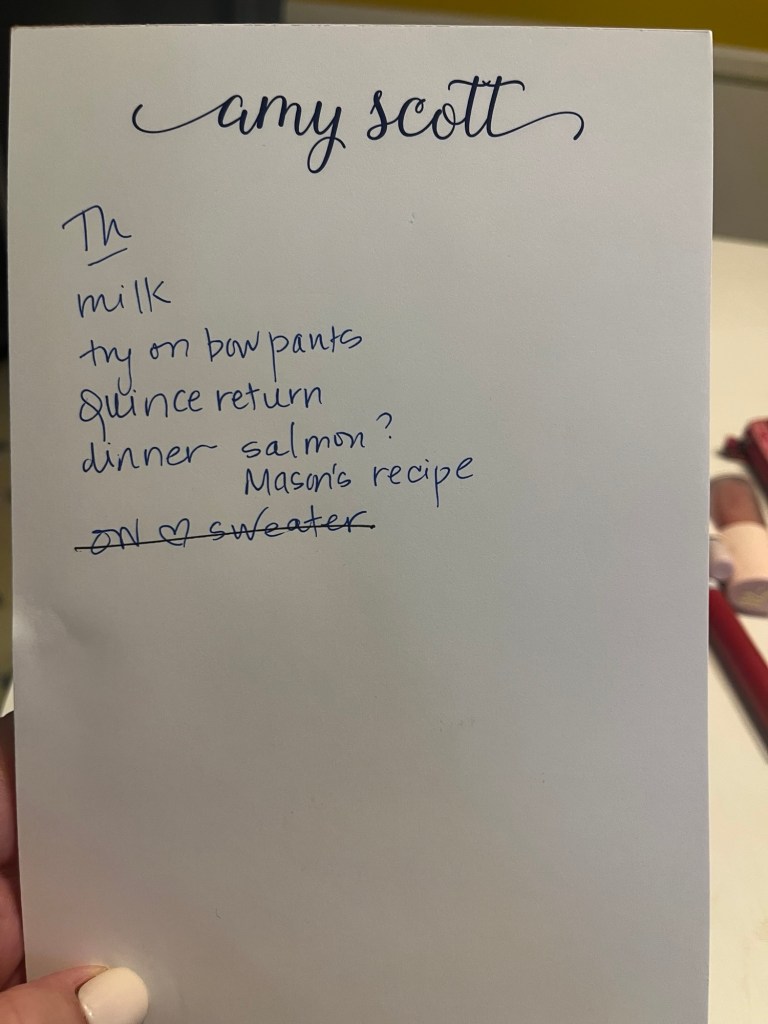 amy scott
Th
milk
try on bow pants
Quince return
dinner salmon?
Mason's recipe
ON ♡ sweater